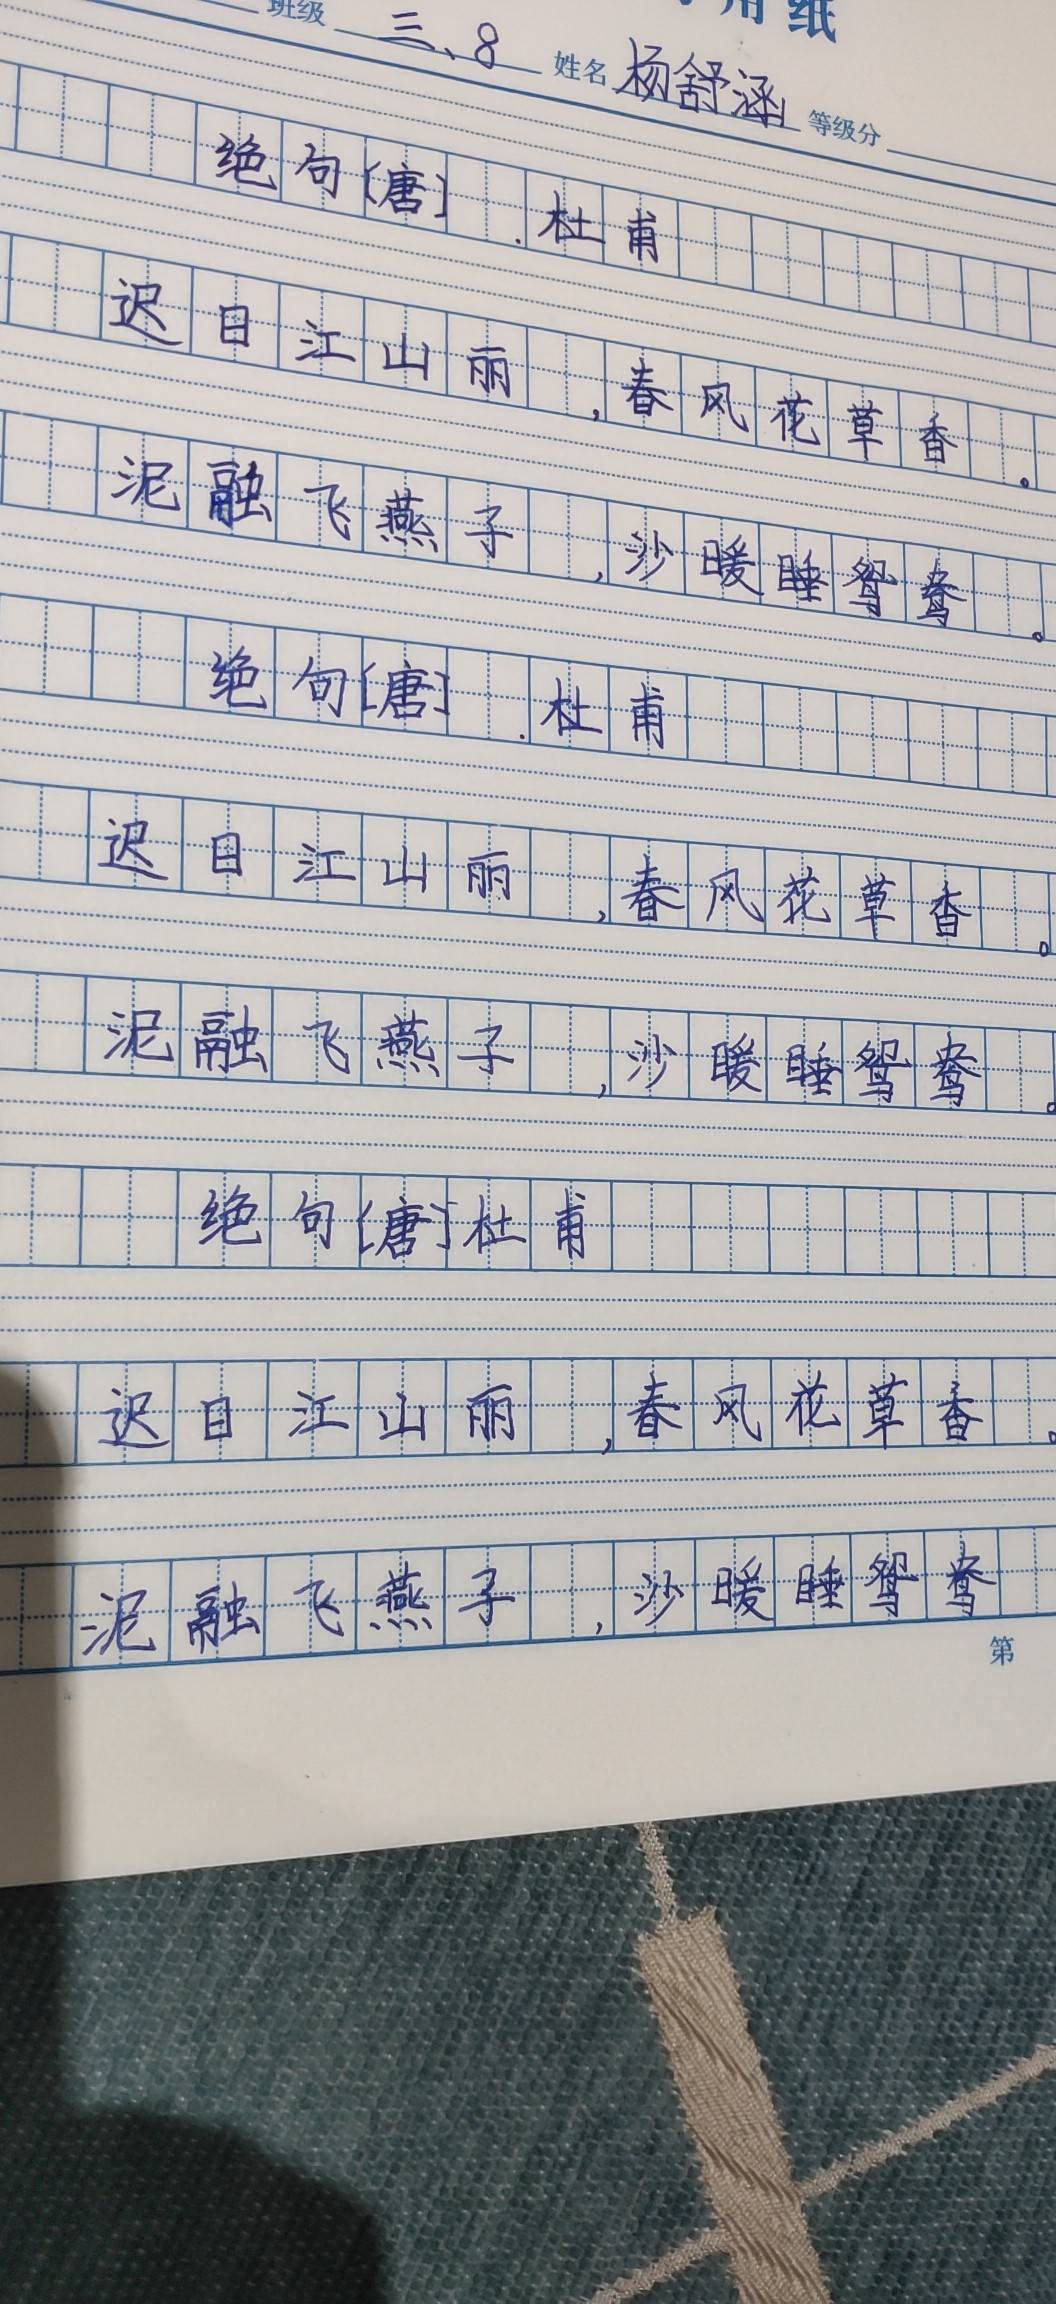 用纸
班级 三、8 姓名 杨舒涵 等级分
绝句[唐].杜甫
迟日江山丽,春风花草香。
泥融飞燕子,沙暖睡鸳鸯。
绝句[唐].杜甫
迟日江山丽,春风花草香。
泥融飞燕子,沙暖睡鸳鸯。
绝句[唐]杜甫
迟日江山丽,春风花草香。
泥融飞燕子,沙暖睡鸳鸯
第